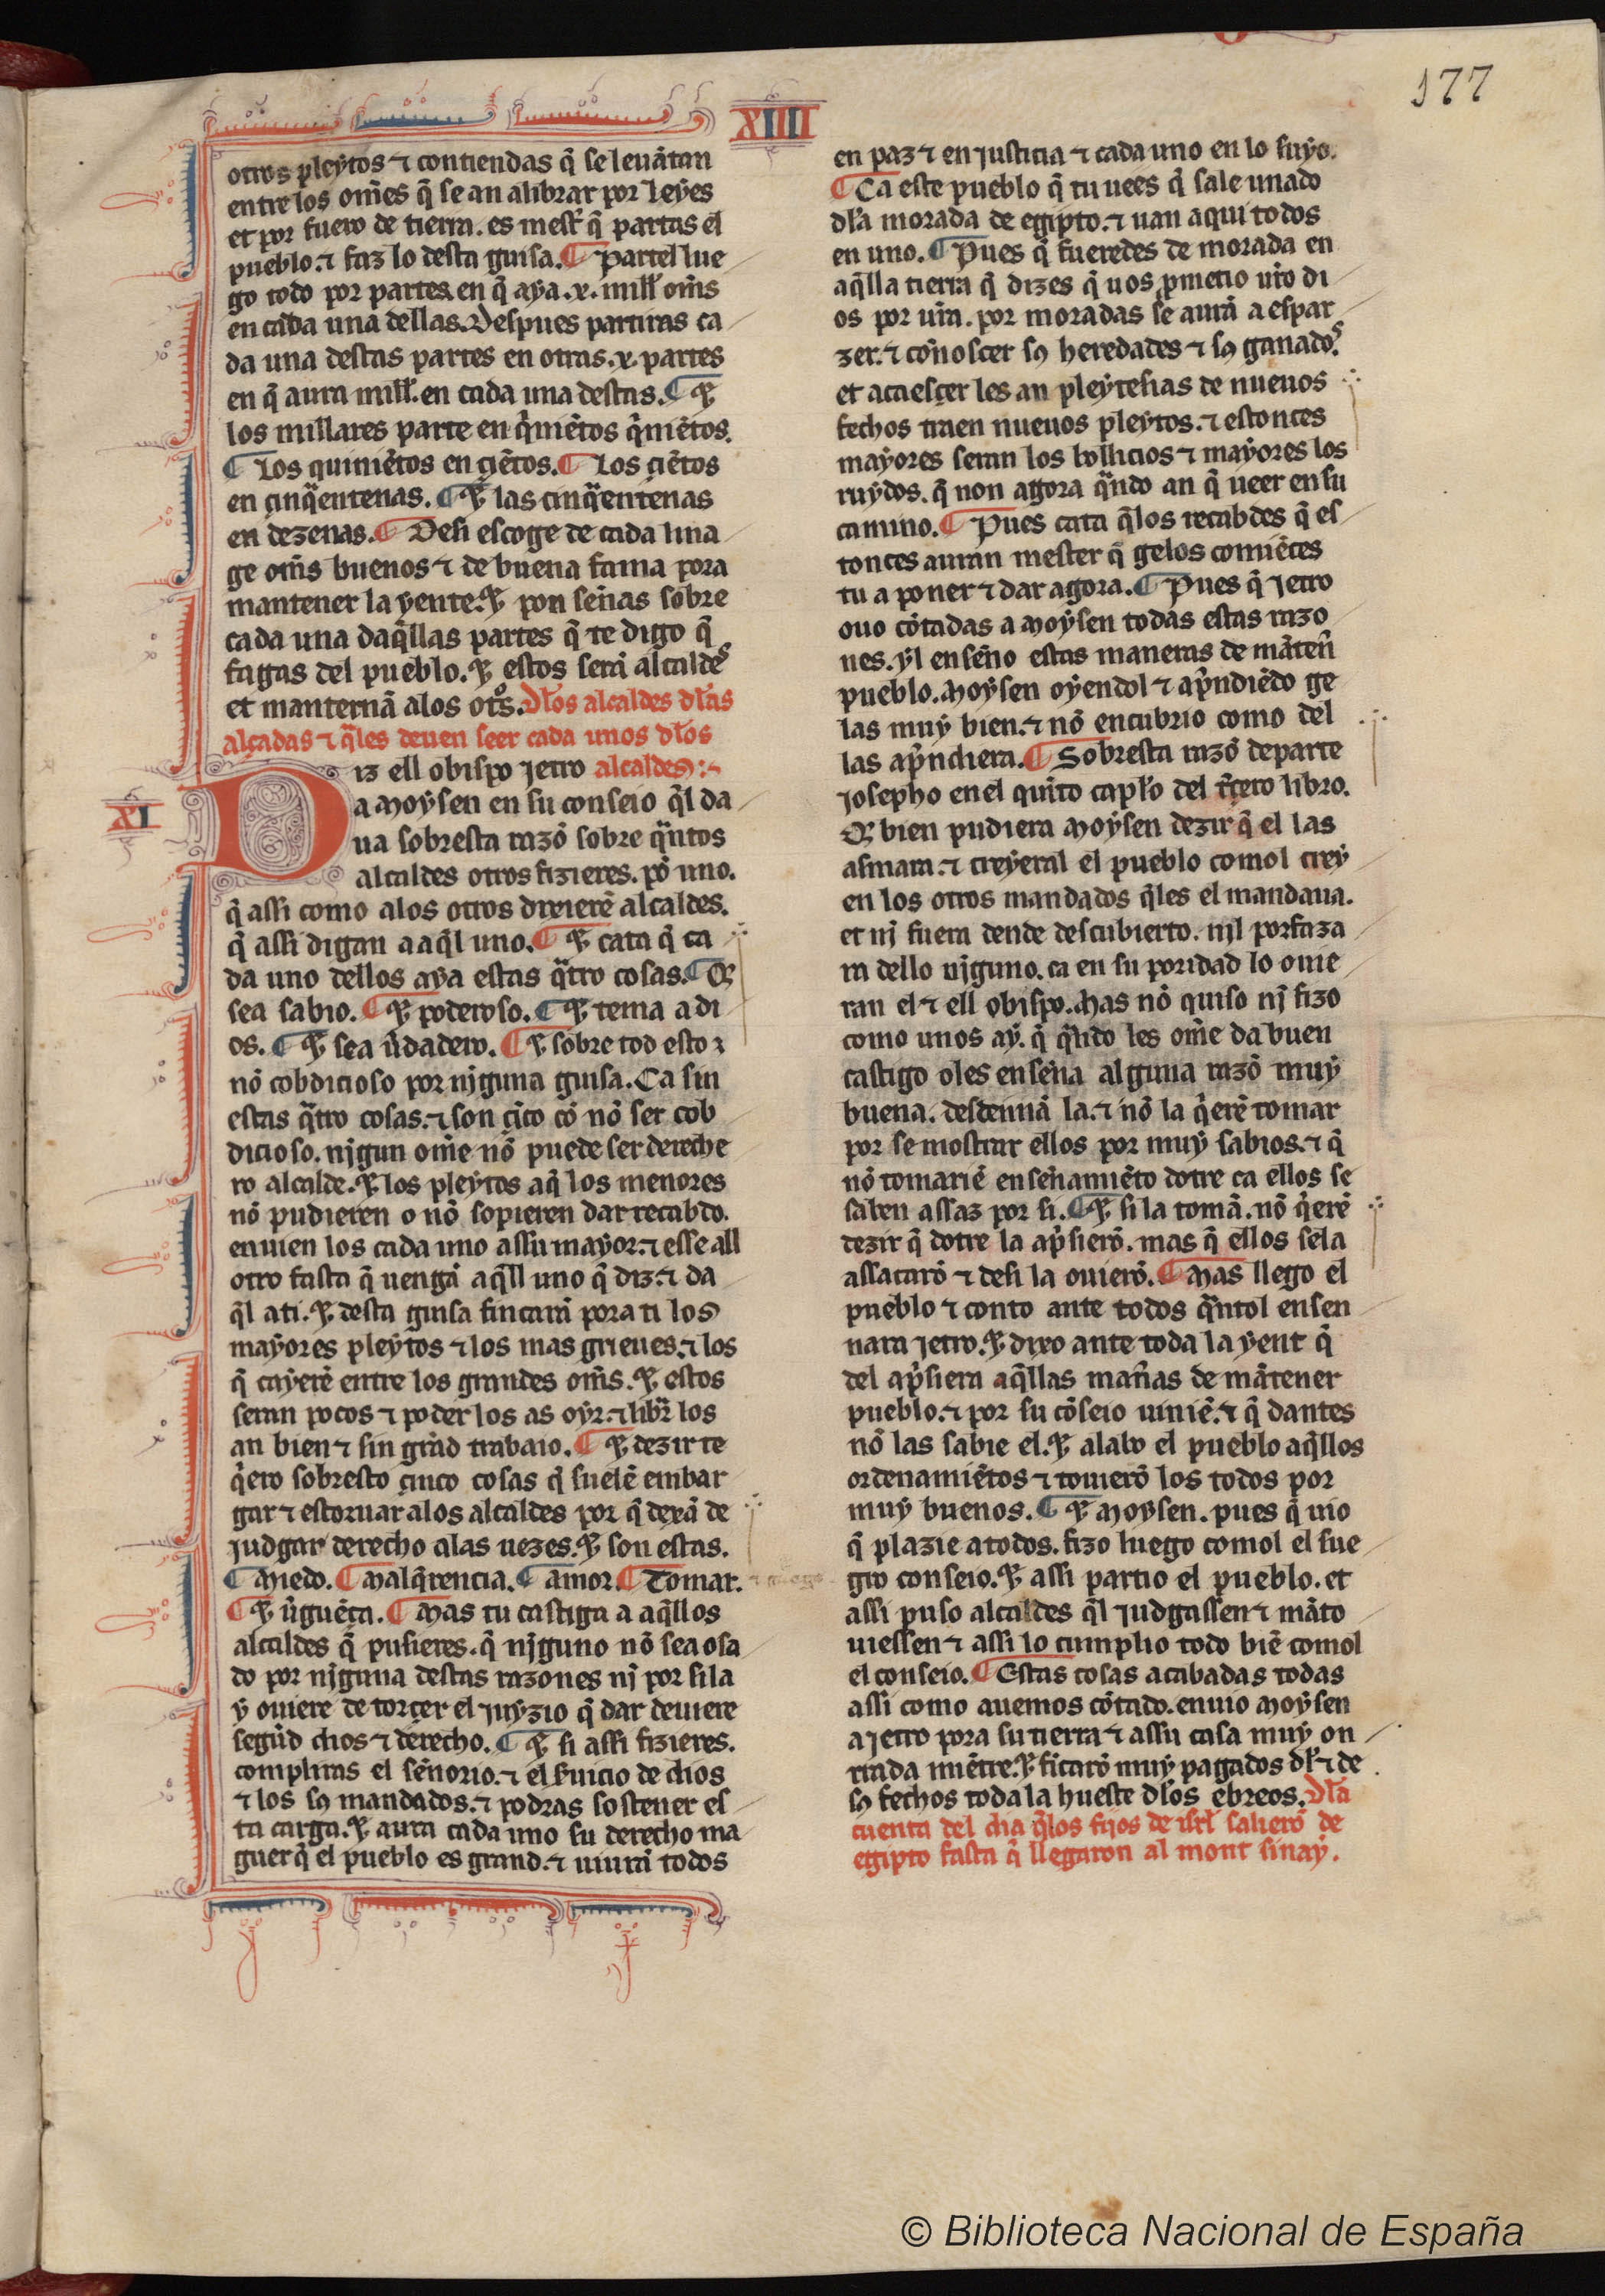 177
XIIII
otros pleytos ⁊ contiendas q̃ se leuãtan
entre los om̃es q̃ se an alibrar por leyes
et por fuero de tierra. es mest̃ q̃ partas el
pueblo.⁊ faz lo desta guisa. ¶ Partel lue
go todo por partes en q̃ aya .x. mill om̃s
en cada una dellas. Despues partiras ca
da una destas partes en otras .x. partes
en q̃ aura mill. en cada una destas. ¶ Et
los millares parte en q̃niẽtos q̃niẽtos.
¶ Los quiniẽtos en çiẽtos. ¶ Los çiẽtos
en çinq̃entenas. ¶ Et las cinq̃entenas
en dezenas. ¶ Desi escoge de cada lina
ge om̃s buenos ⁊ de buena fama pora
mantener la yente. Et pon señas sobre
cada una daq̃llas partes q̃ te digo q̃
fagas del pueblo. Et estos serã alcaldes
et manternã alos ot̃os. Dlos alcaldes dlas
alçadas ⁊ q̃les deuen seer cada unos dlos
Diz ell obispo Jetro alcaldes:~
XI
a Moysen en su conseio q̃l da
ua sobresta razõ sobre q̃ntos
alcaldes otros fizieres. põ uno.
q̃ assi como alos otros dixierẽ alcaldes.
q̃ assi digan a aq̃l uno. ¶ Et cata q̃ ca
da uno dellos aya estas q̃tro cosas. ¶ Que
sea sabio. ¶ Et poderoso. ¶ Et tema a di
os. ¶ Et sea ũdadero. ¶ Et sobre tod esto ⁊
nõ cobdicioso por nj̃guna guisa. Ca sin
estas q̃tro cosas.⁊ son çĩco cõ nõ ser cob
dicioso. nj̃gun om̃e nõ puede ser dereche
ro alcalde. Et los pleytos aq̃ los menores
nõ pudieren o nõ sopieren dar recabdo.
enuien los cada uno assu mayor.⁊ esse all
otro fasta q̃ uengã aq̃ll uno q̃ diz.⁊ da
q̃l ati. Et desta guisa fincarã pora ti los
mayores pleytos ⁊ los mas grieues.⁊ los
q̃ cayerẽ entre los grandes om̃s. Et estos
seran pocos ⁊ poder los as oyr.⁊ libr̃ los
an bien ⁊ sin grãd trabaio. ¶ Et dezir te
q̃ero sobresto çinco cosas q̃ suelẽ embar
gar ⁊ estoruar alos alcaldes por q̃ dexã de
judgar derecho alas uezes. Et son estas.
¶ Miedo. ¶ Malq̃rencia. ¶ Amor. ¶ Tomar.
¶ Et ũguẽça. ¶ Mas tu castiga a aq̃llos
alcaldes q̃ pusieres. q̃ nj̃guno nõ sea osa
do por nj̃guna destas razones nj̃ por si la
y ouiere de torçer el juyzio q̃ dar deuiere
segũd dios ⁊ derecho. ¶ Et si assi fizieres.
compliras el señorio.⁊ el s̃uicio de dios
⁊ los sꝯ mandados.⁊ podras sostener es
ta carga. Et aura cada uno su derecho ma
guer q̃ el pueblo es grand.⁊ uiurã todos
en paz ⁊ en justicia ⁊ cada uno en lo suyo.
¶ Ca este pueblo q̃ tu uees q̃ sale unado
dla morada de egipto.⁊ uan aqui todos
en uno. ¶ Pues q̃ fueredes de morada en
aq̃lla tierra q̃ dizes q̃ uos ꝓmetio ur̃o di
os por uir̃. por moradas se aurã a espar
zer.⁊ coñoscer sꝯ heredades ⁊ sꝯ ganados.
et acaesçer les an pleytesias de nueuos
fechos traen nueuos pleytos.⁊ estonces
mayores seran los bollicios ⁊ mayores los
ruydos. q̃ non agora q̃ndo an q̃ ueer en su
camino. ¶ Pues cata q̃los recabdes q̃ es
tonces auran mester q̃ gelos comiẽces
tu a poner ⁊ dar agora. ¶ Pues q̃ Jetro
ouo cõtadas a Moysen todas estas razo
nes. yl enseño estas maneras de mãteñ
pueblo. Moysen oyendol ⁊ ap̃ndiẽdo ge
las muy bien.⁊ nõ encubrio como del
las ap̃ndiera. ¶ Sobresta razõ departe
Josepho en el quĩto capl̃o del t̃cero libro.
Que bien pudiera Moysen dezir q̃ el las
asmara.⁊ creyeral el pueblo comol crey
en los otros mandados q̃les el mandaua.
et nj̃ fuera dende descubierto. nj̃l porfaza
ra dello nj̃guno. ca en su poridad lo ouie
ran el ⁊ ell obispo. Mas nõ quiso nj̃ fizo
como unos ay. q̃ q̃ndo les om̃e da buen
castigo oles enseña alguna razõ muy
buena. desdennã la.⁊ nõ la q̃erẽ tomar
por se mostrar ellos por muy sabios.⁊ q̃
nõ tomariẽ enseñamiẽto dotre ca ellos se
saben assaz por si. ¶ Et si la tomã. nõ q̃erẽ
dezir q̃ dotre la ap̃sierõ. mas q̃ ellos sela
assacarõ ⁊ desi la ouierõ. ¶ Mas llego el
pueblo ⁊ conto ante todos q̃ntol ensen
nara Jetro. Et dixo ante toda la yent q̃
del ap̃siera aq̃llas mañas de mãtener
pueblo.⁊ por su cõseio uiniẽ.⁊ q̃ dantes
nõ las sabie el. Et alabo el pueblo aq̃llos
ordenamiẽtos ⁊ touierõ los todos por
muy buenos. ¶ Et Moysen. pues q̃ uio
q̃ plazie a todos. fizo luego comol el sue
gro conseio. Et assi partio el pueblo. et
assi puso alcaldes q̃l judgassen ⁊ mãto
uiessen ⁊ assi lo cumplio todo biẽ comol
el conseio. ¶ Estas cosas acabadas todas
assi como auemos cõtado. enuio Moysen
a Jetro pora su tierra ⁊ assu casa muy on
rrada miẽtre. Et fĩcarõ muy pagados dl ⁊ de
sꝯ fechos toda la hueste dlos ebreos. Dla
cuenta del dia q̃los fijos de isrl̃ salierõ de
egipto fasta q̃ llegaron al mont sinay.
© Biblioteca Nacional de España